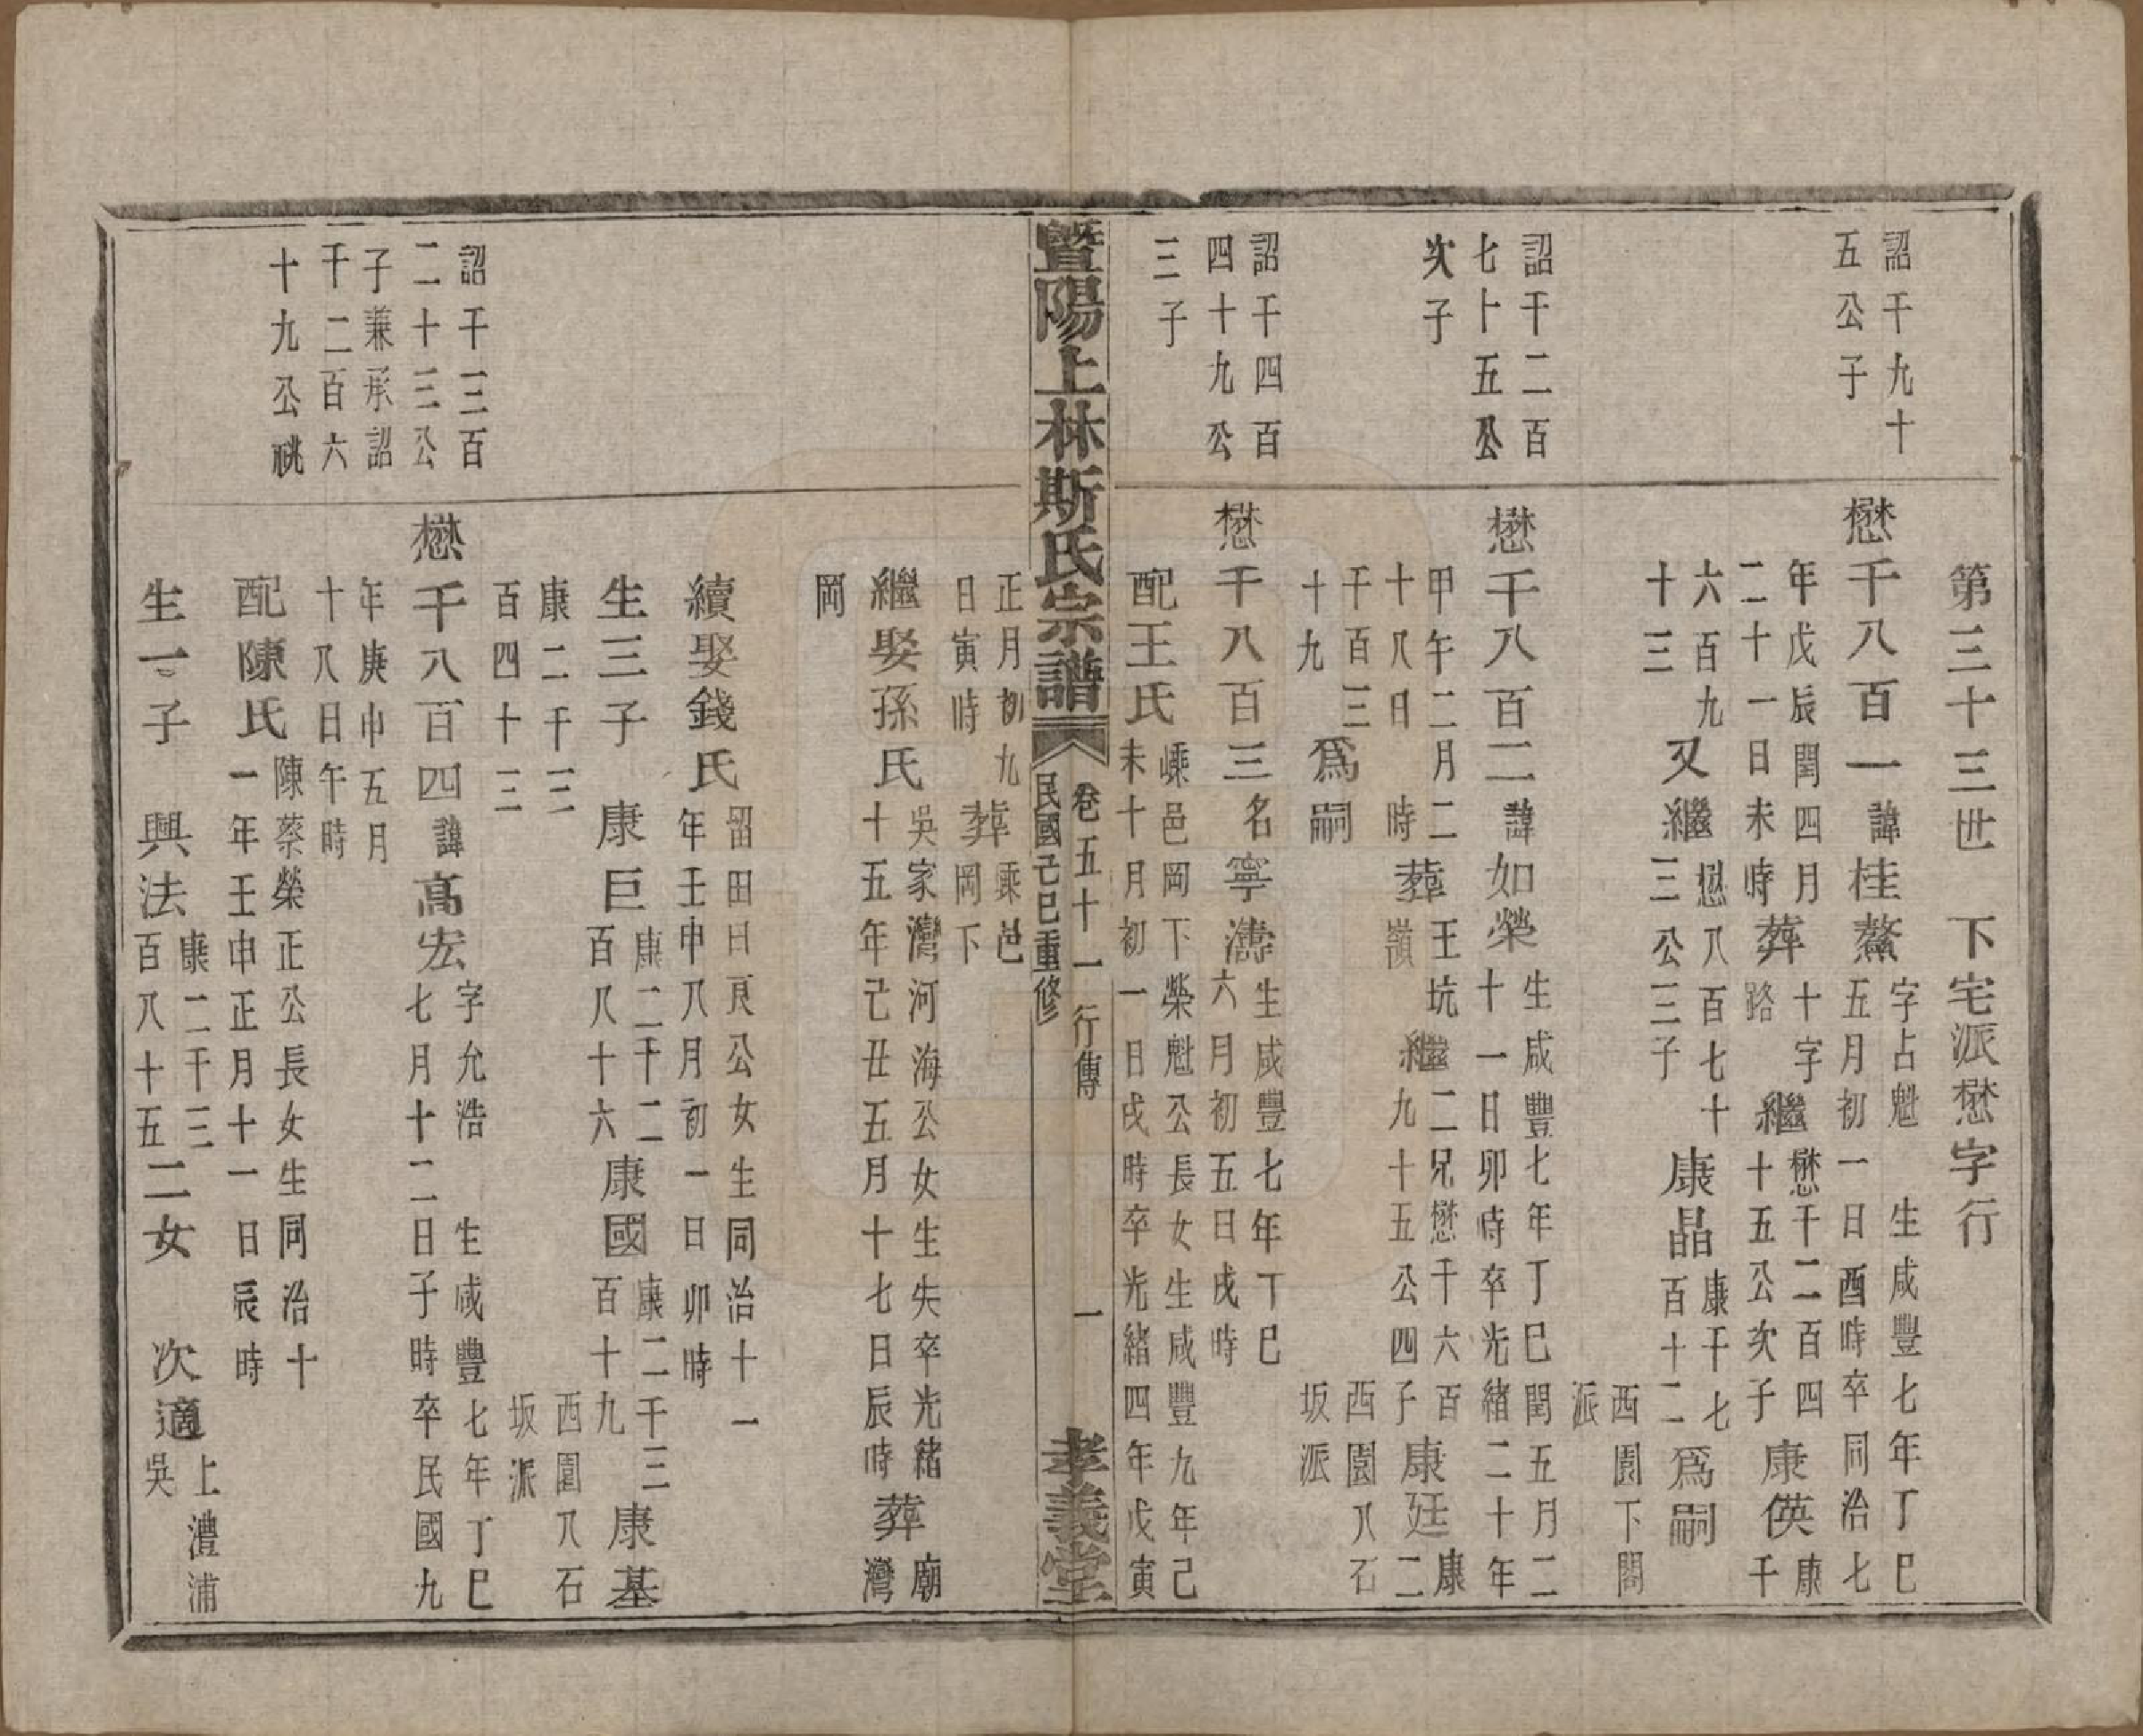 第三十三世 下宅派懋字行
詔千九十
五公子
懋千八百一 諱桂鰲
字占魁 生咸豐七年丁巳
五月初一日酉時卒同治七
年戊辰閏四月
二十一日未時
葬
十字
路
繼
懋千二百四
十五公次子
康偀
康千
六百九
十三
又繼
懋八百七十
三公三子
康晶
康千七
百十二
為嗣
西園下閣
派
詔千二百
七十五公
次子
懋千八百二 諱如榮
生咸豐七年丁巳閏五月二
十一日卯時卒光緒二十年
甲午二月二
十八日 時
葬
王坑
嶺
繼
二兄懋千六百
九十五公四子
康廷
康二
千百三
十九
為嗣
西園八石
坂派
詔千四百
四十九公
三子
懋千八百三 名寧濤
生咸豐七年丁巳
六月初五日戌時
配王氏
嵊邑岡下榮魁公長女生咸豐九年己
未十月初一日戌時卒光緒四年戊寅
正月初九
日寅時
葬
嵊邑
岡下
繼娶孫氏
吳家灣河海公女生失卒光緒
十五年己丑五月十七日辰時
葬
廟
灣
岡
暨陽上林斯氏宗譜
卷五十一 行傳 一
民國己巳重修
孝義堂
續娶錢氏
留田日良公女生同治十一
年壬申八月初一日卯時
生三子 康巨
康二千二
百八十六
康國
康二千三
百十九
康基
康二千三
百四十三
西園八石
坂派
詔千三百
二十三公
子兼承詔
千二百六
十九公祧
懋千八百四 諱高宏
字允浩 生咸豐七年丁巳
七月十二日子時卒民國九
年庚申五月
十八日午時
配陳氏
陳蔡榮正公長女生同治十
一年壬申正月十一日辰時
生一子 興法
康二千三
百八十五
二女 次適
上澧浦
吳